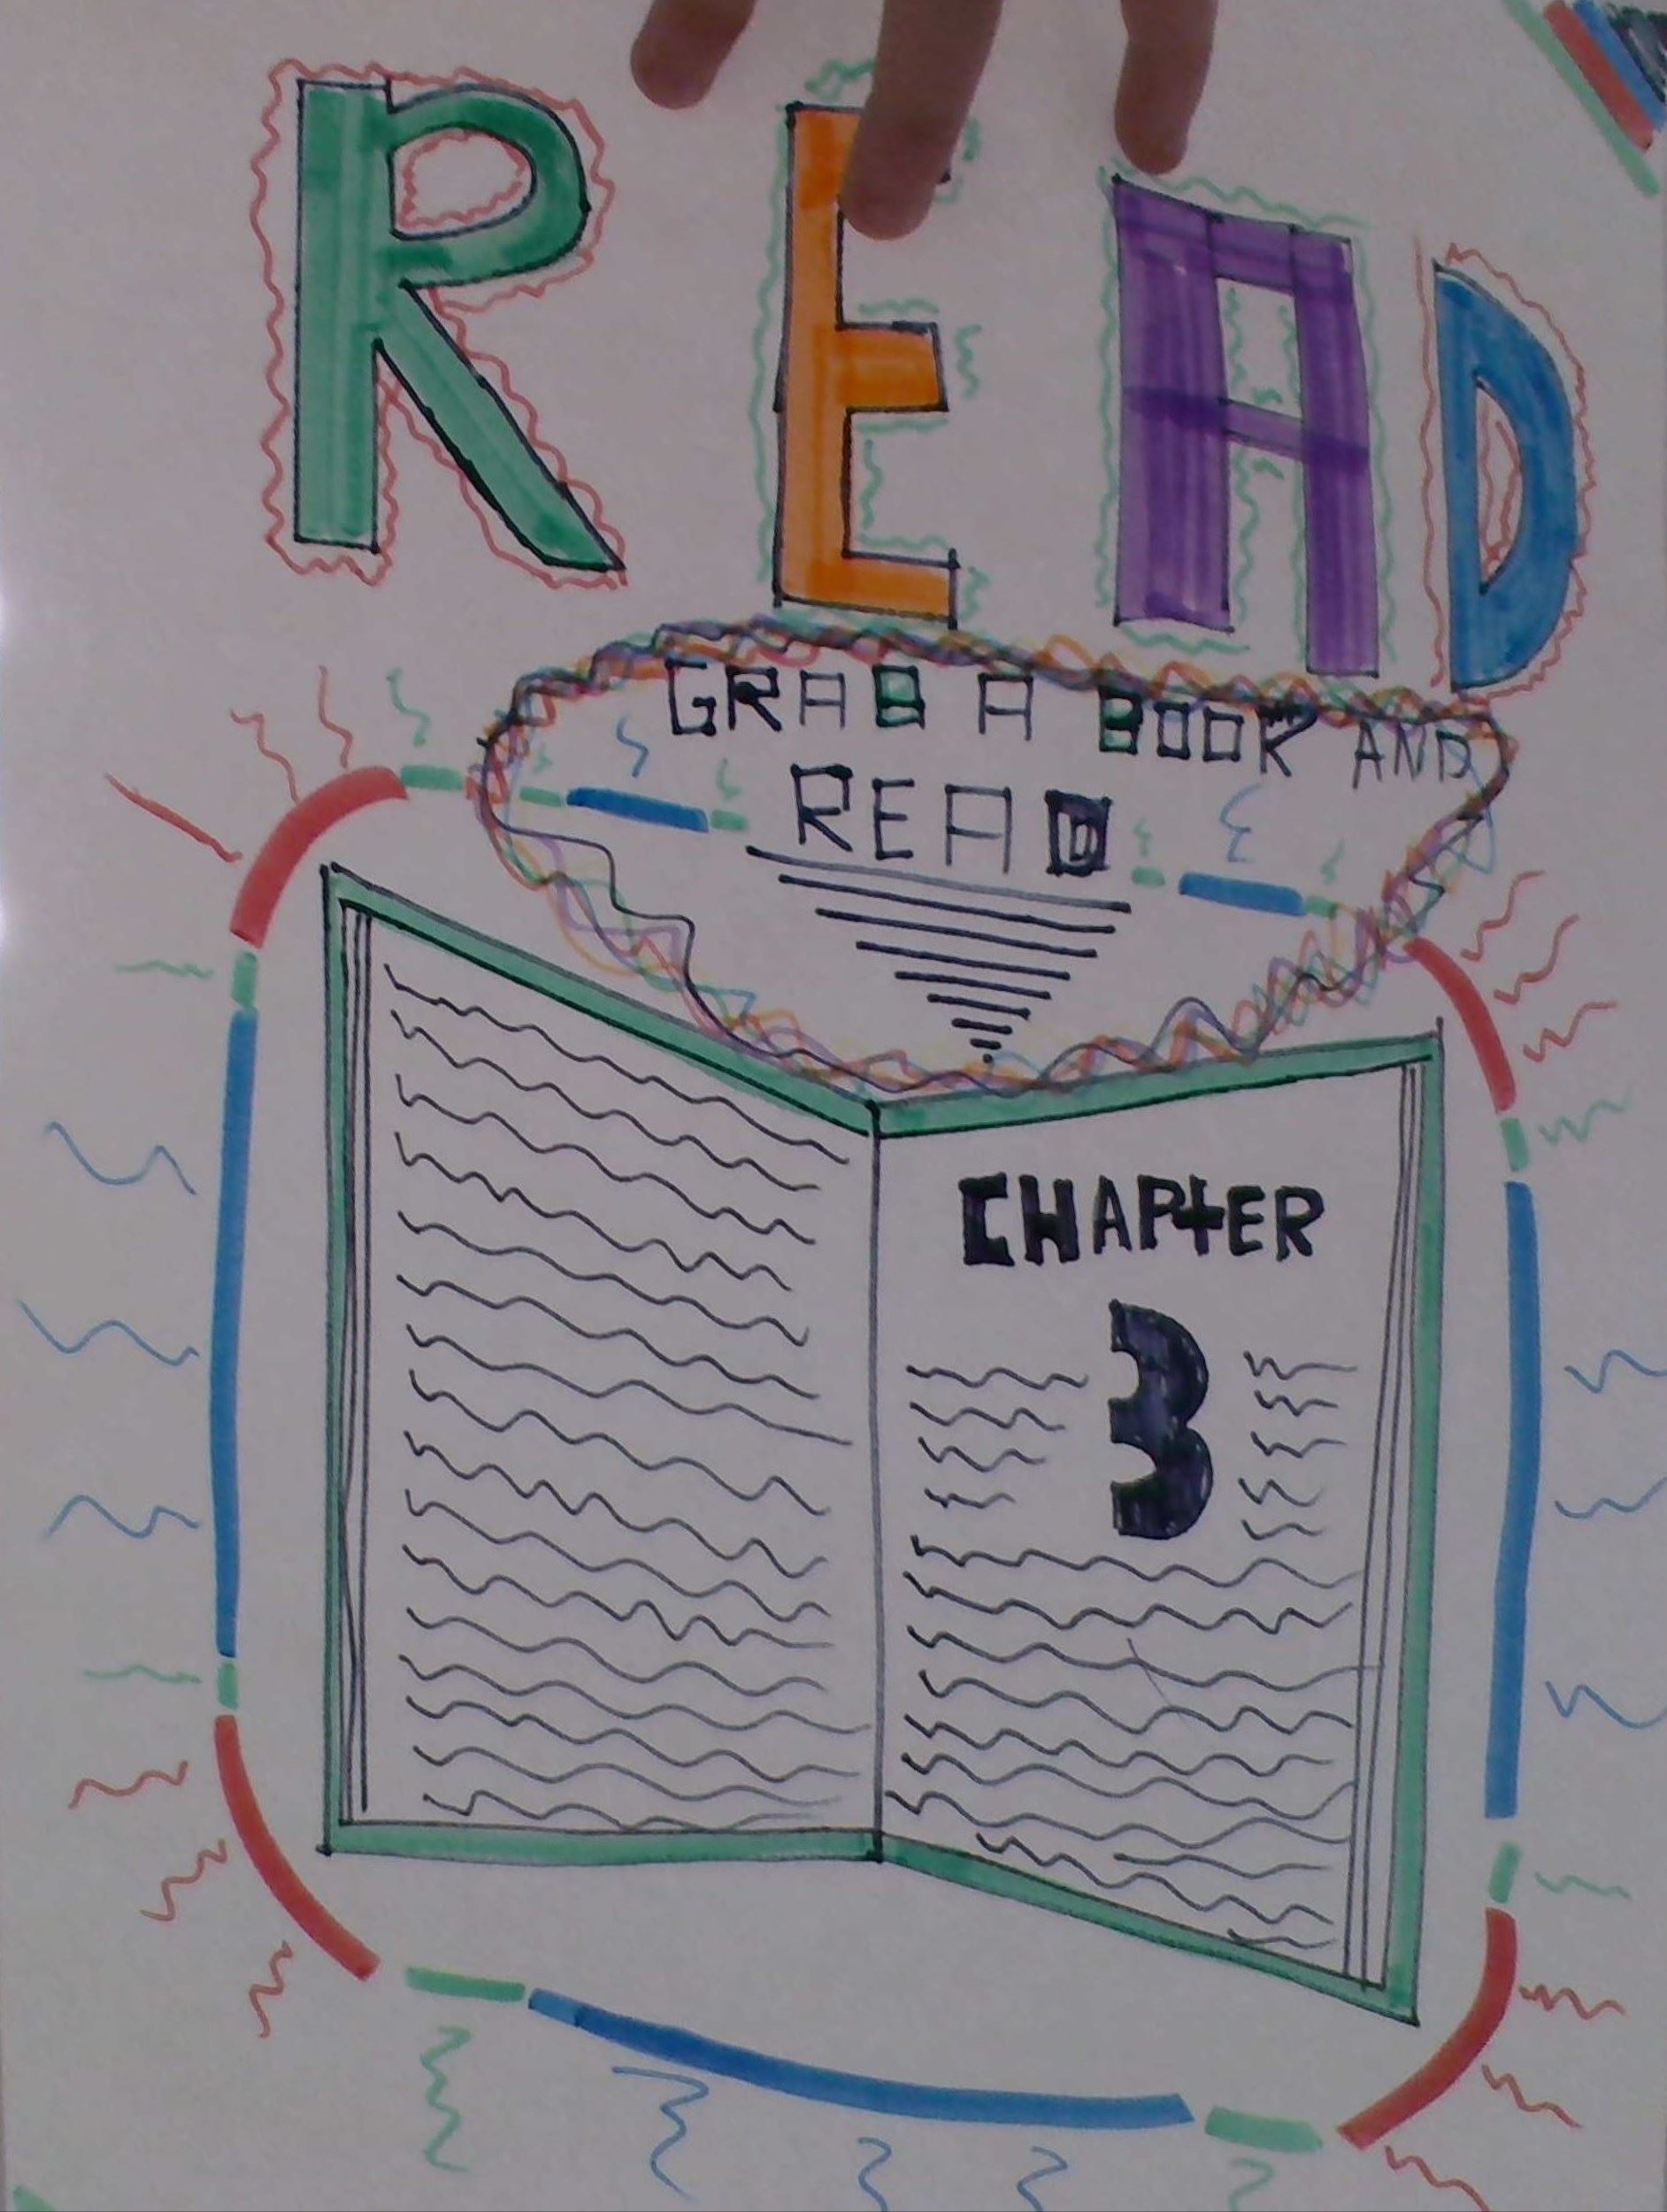 READ
GRAB A BOOK AND
READ
CHAPTER
3